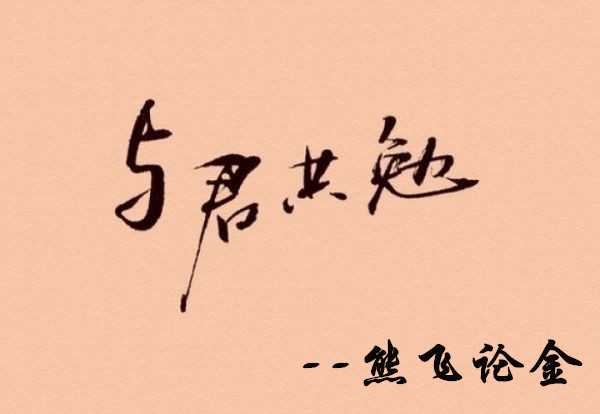 与君共勉
--熊飞论金